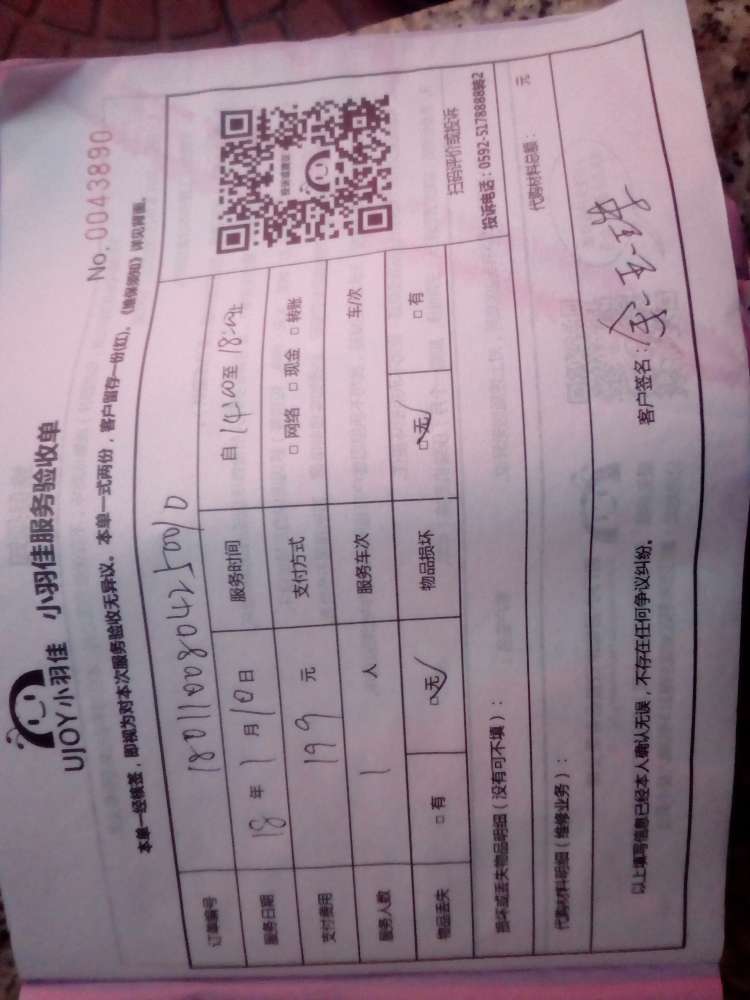 No. 0043890
UJOY小羽佳 小羽佳服务验收单
本单一经确签，即视为对本次服务验收无异议。本单一式两份，客户留存一份(红)。《售保须知》详见背面。
订单编号
服务日期 18 年 1 月 10 日 服务时间 自 14:00 至 18:00 止
支付费用 199 元 支付方式 □ 网络 □ 现金 □ 转账
服务人数 1 人 服务车次 车/次
物品丢失 □ 有 □ 无 物品损坏 □ 无 □ 有
投诉或建议
扫码评价或投诉
投诉电话：0592-5178888转2
损坏或丢失物品明细（没有可不填）：
代购材料明细（维修业务）： 代购材料总额： 元
以上填写信息已经本人确认无误，不存在任何争议纠纷。 客户签名：